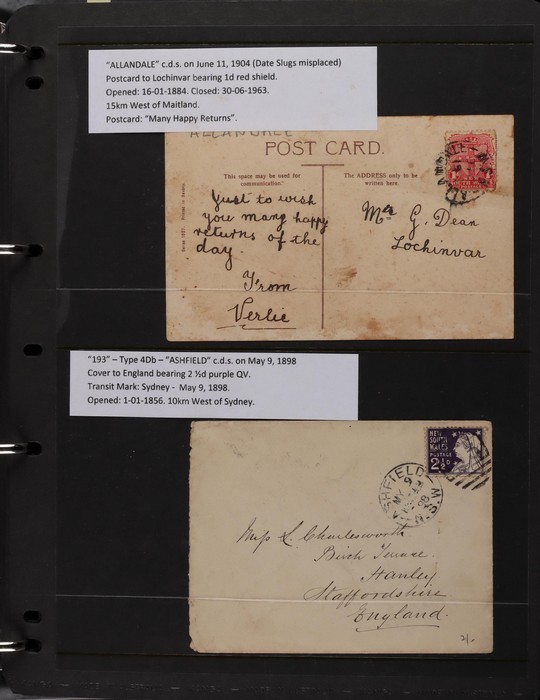 "ALLANDALE" c.d.s. on June 11, 1904 (Date Slugs misplaced)
Postcard to Lochinvar bearing 1d red shield.
Opened: 16-01-1884. Closed: 30-06-1963.
15km West of Maitland.
Postcard: "Many Happy Returns".
ALLANDALE
POST CARD.
This space may be used for
communication.
The ADDRESS only to be
written here.
Just to wish
you many happy
returns of the
day.
From
Verlie
Mr G. Dean
Lochinvar
"193" – Type 4Db – "ASHFIELD" c.d.s. on May 9, 1898
Cover to England bearing 2 ½d purple QV.
Transit Mark: Sydney - May 9, 1898.
Opened: 1-01-1856. 10km West of Sydney.
NEW
SOUTH
WALES
POSTAGE
2½d
ASHFIELD
MY 9
98
N.S.W
Miss L. Charlesworth
Birch Terrace.
Hanley
Staffordshire
England.
2/-